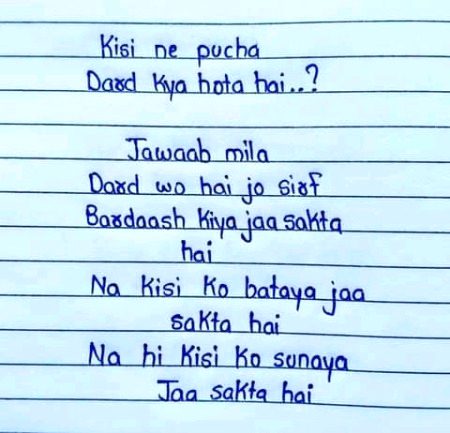 Kisi ne pucha
Dard Kya hota hai..?
Jawaab mila
Dard wo hai jo sirf
Bardaash Kiya jaa sakta
hai
Na Kisi Ko bataya jaa
sakta hai
Na hi Kisi Ko sunaya
Jaa sakta hai